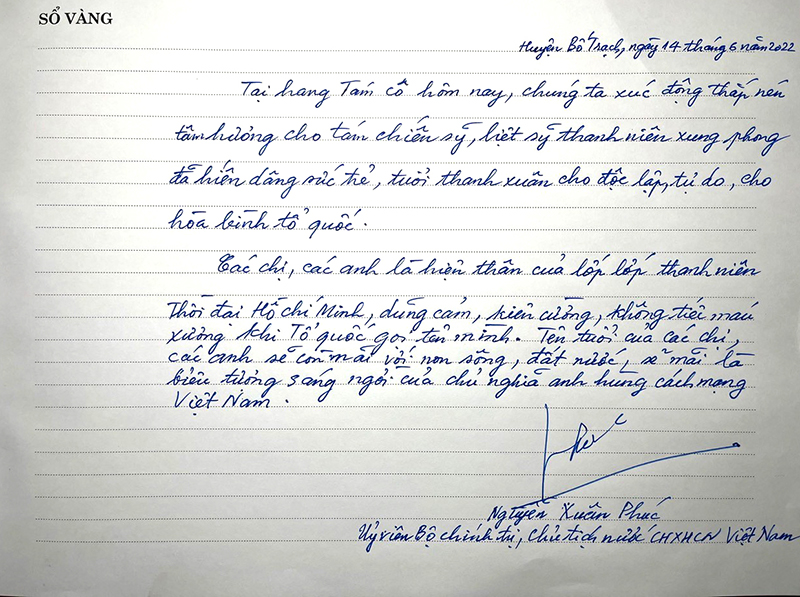 SỔ VÀNG
Huyện Bố Trạch, ngày 14 tháng 6 năm 2022
Tại hang Tám cô hôm nay, chúng ta xúc động thắp nén
tâm hương cho tám chiến sỹ, liệt sỹ thanh niên xung phong
đã hiến dâng sức trẻ, tuổi thanh xuân cho độc lập, tự do, cho
hòa bình tổ quốc.
Các chị, các anh là hiện thân của lớp lớp thanh niên
Thời đại Hồ Chí Minh, dũng cảm, kiên cường, không tiếc máu
xương khi Tổ quốc gọi tên mình. Tên tuổi của các chị,
các anh sẽ còn mãi với non sông, đất nước, sẽ mãi là
biểu tượng sáng ngời của chủ nghĩa anh hùng cách mạng
Việt Nam.
Phúc
Nguyễn Xuân Phúc
Uỷ viên Bộ chính trị, Chủ tịch nước CHXHCN Việt Nam